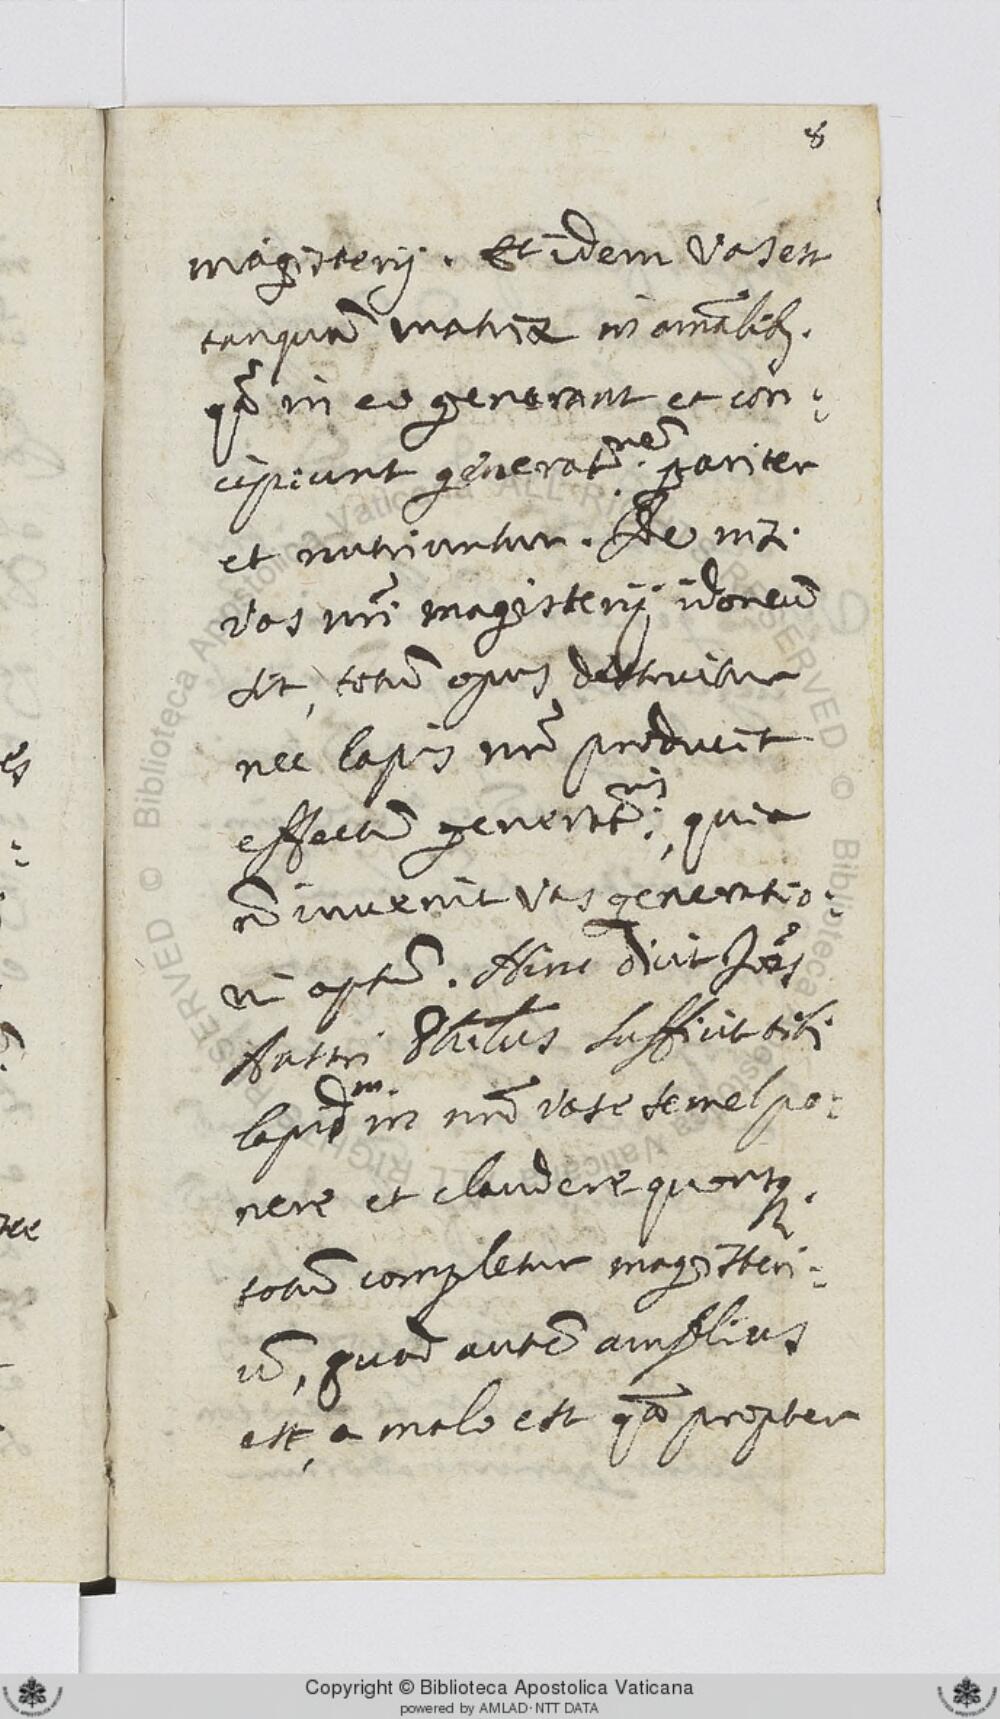 8
magisterij. Et idem vas est
tanquã matrix in aĩalib9.
qã in eo generant et con-
cipiunt generat.nẽ pariter
et nutriuntur. Se niz.
vas nr̃i magisterij idoneũ
sit, totũ opus destruitur
nec lapis nr̃ producit
effectũ generat.nis, quia
nõ invenit vas generatio-
ni aptũ. Hinc dicit Joẽs
Austri Ph̃us sufficit tibi
lapidẽ in nr̃o vase semel po-
nere et claudere
totũ completur magisteri-
ũ, quod autẽ amplius
est, a malo est qã propter
es
Copyright © Biblioteca Apostolica Vaticana
powered by AMLAD·NTT DATA